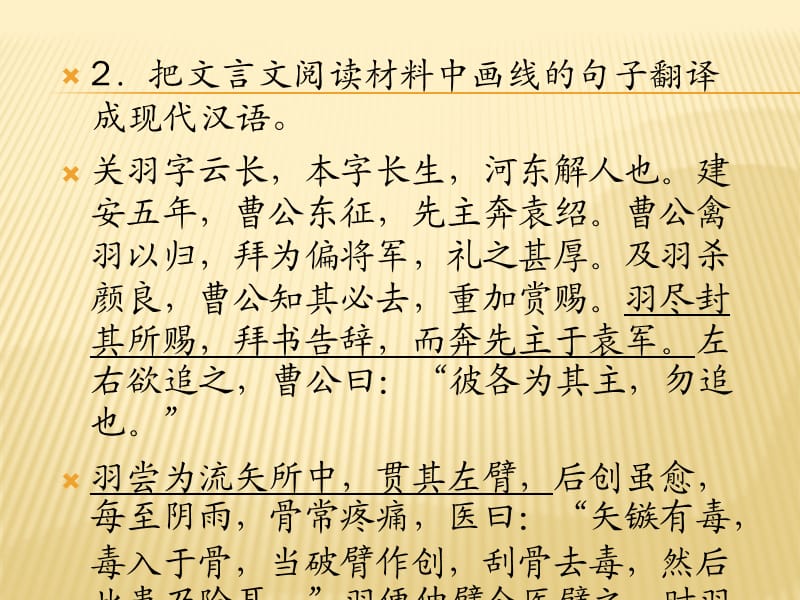 2．把文言文阅读材料中画线的句子翻译
成现代汉语。
关羽字云长，本字长生，河东解人也。建
安五年，曹公东征，先主奔袁绍。曹公禽
羽以归，拜为偏将军，礼之甚厚。及羽杀
颜良，曹公知其必去，重加赏赐。羽尽封
其所赐，拜书告辞，而奔先主于袁军。左
右欲追之，曹公曰：“彼各为其主，勿追
也。”
羽尝为流矢所中，贯其左臂，后创虽愈，
每至阴雨，骨常疼痛，医曰：“矢镞有毒，
毒入于骨，当破臂作创，刮骨去毒，然后
此患乃除耳。”羽便伸臂令医劈之。时羽